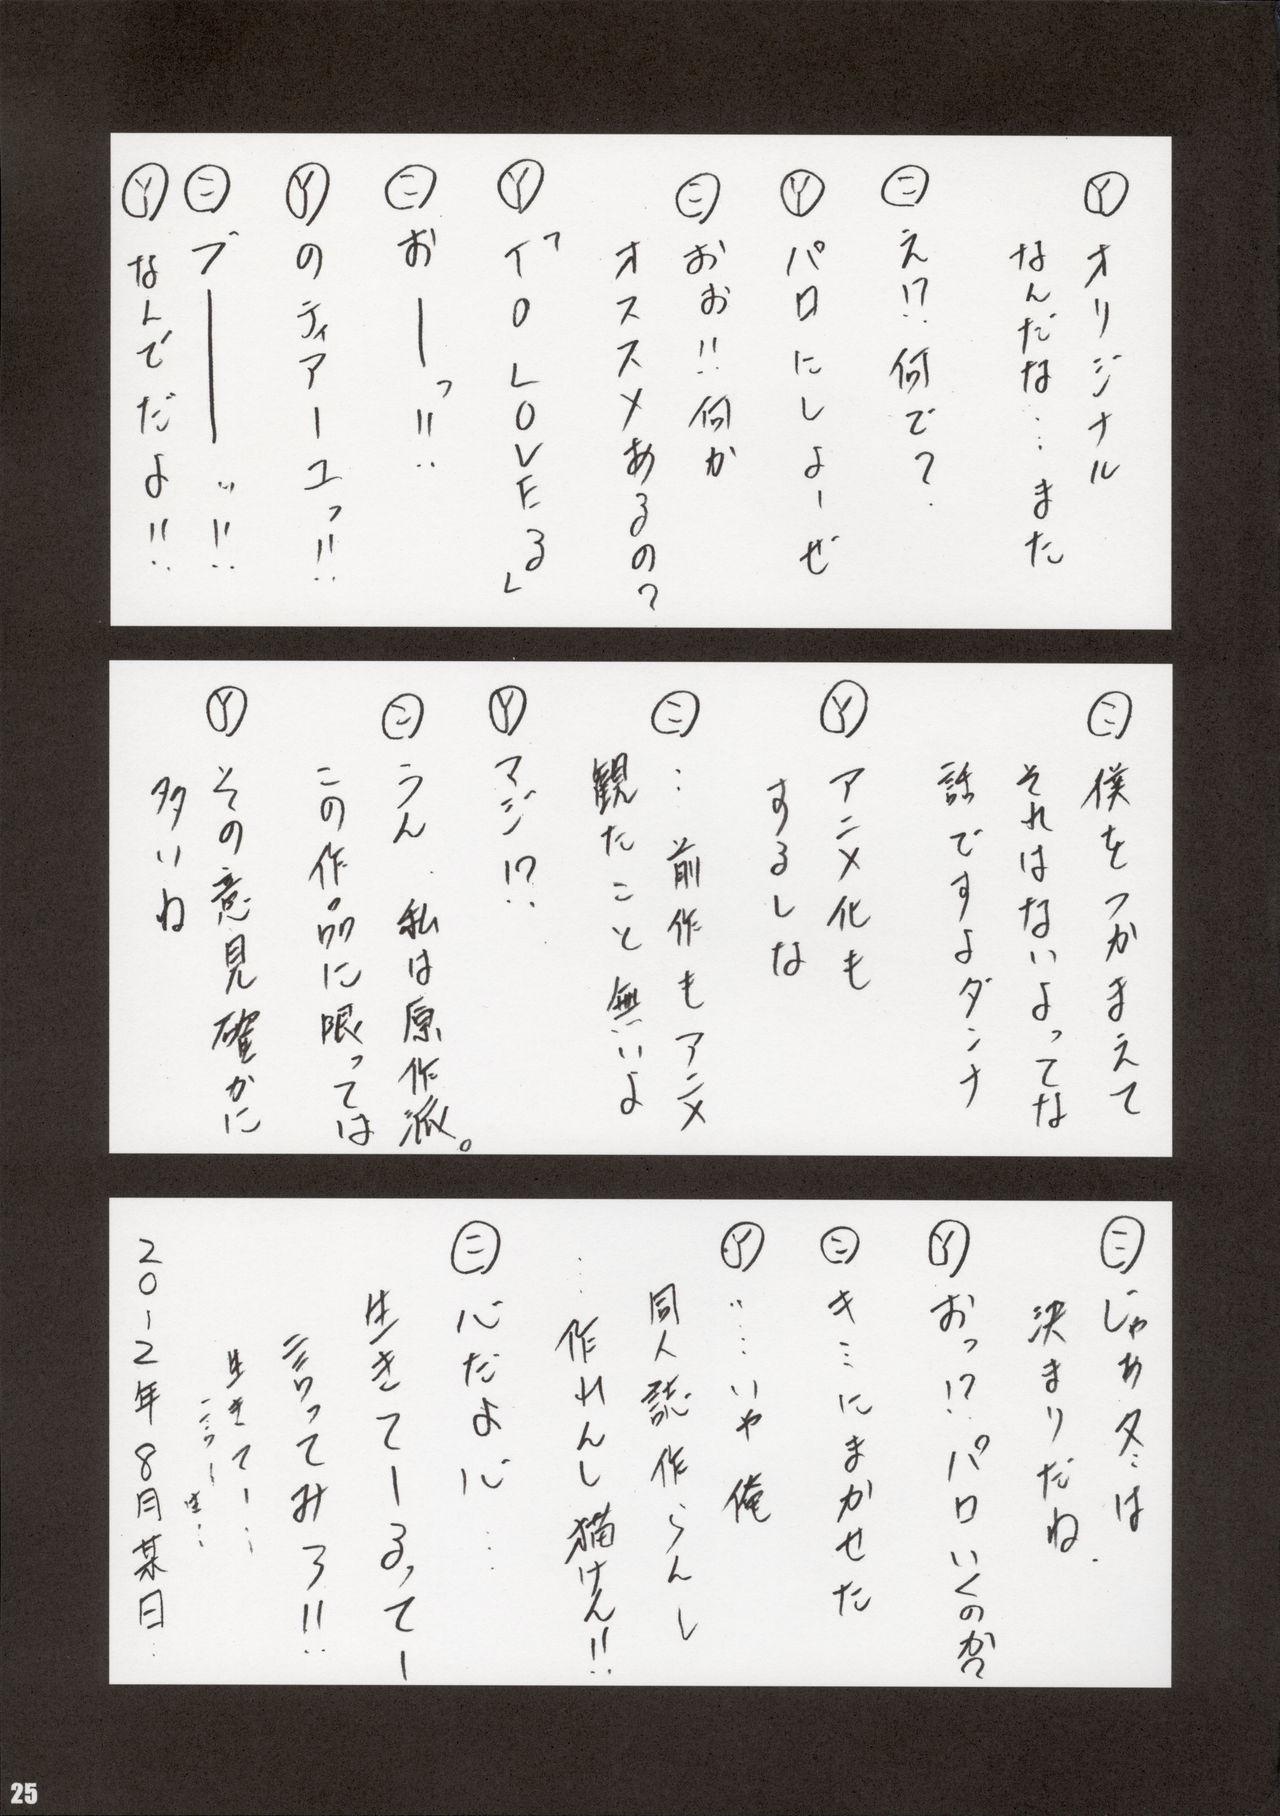 Ⓨオリジナル
なんだな…また
㊁え!?何で?
Ⓨパロにしよーぜ
㊁おお!!何か
オススメあるの?
Ⓨ「TO LOVEる」
㊁おーーっ!!
Ⓨのティアーユっ!!
㊁ブーーーッ!!
Ⓨなんでだよ!!
㊁僕をつかまえて
それはないよってな
話ですよダンナ
Ⓨアニメ化も
するしな
㊁…前作もアニメ
観たこと無いよ
Ⓨマジ!?
㊁うん 私は原作派。
この作品に限っては
Ⓨその意見確かに
多いね
㊁じゃあ冬は
決まりだね.
Ⓨおっ!?パロいくのか?
㊁キミにまかせた
Ⓨ…いや俺
同人誌作らんし
…作れんし猫けん!!
㊁心だよ心…
生きてーるってー
言ってみろ!!
生きてー…
2012年8月某日
25